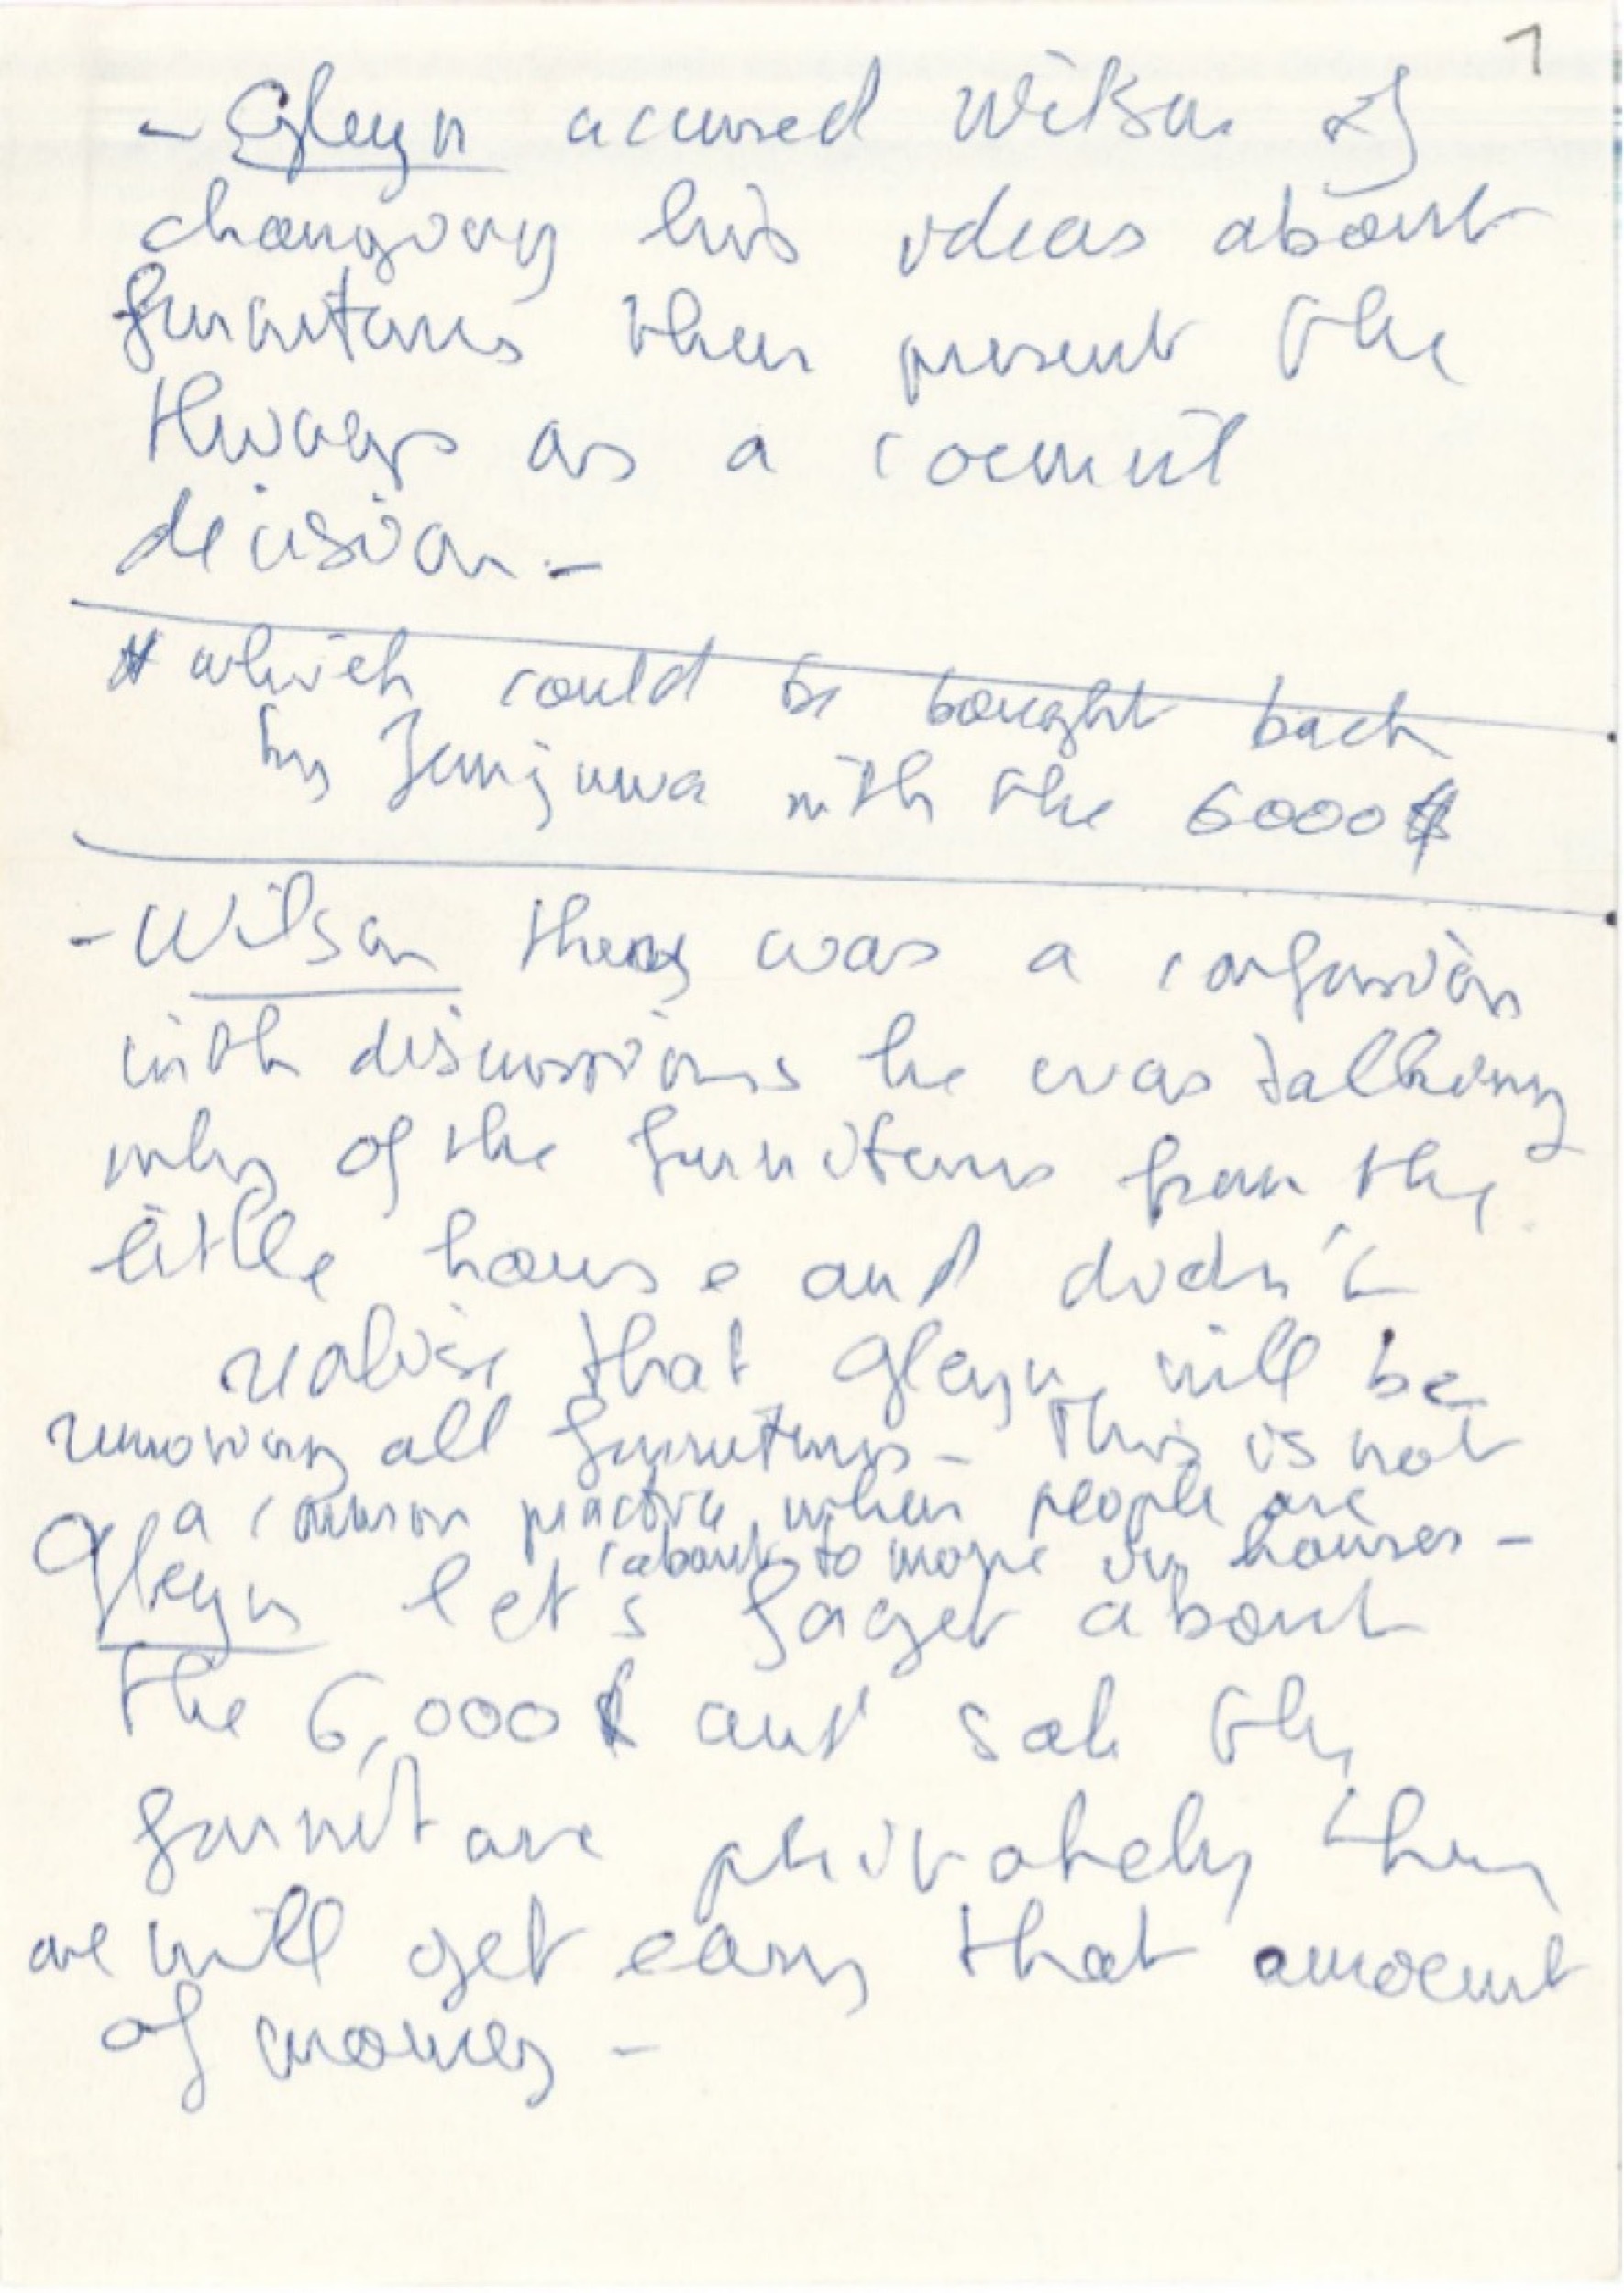 7
- Gleyn accused Wilson of
changing his ideas about
furnitures then present the
things as a council
decision. -
# which could be bought back
by Junjuwa with the 6000 $
- Wilson there was a confusion
with discussions he was talking
only of the furnitures from the
little house and didn't
realise that Gleyn will be
removing all furnitures - This is not
a common practice when people are
about to move in houses -
Gleyn let's forget about
the 6,000 $ and sale the
furniture privately then
we will get easy that amount
of money -